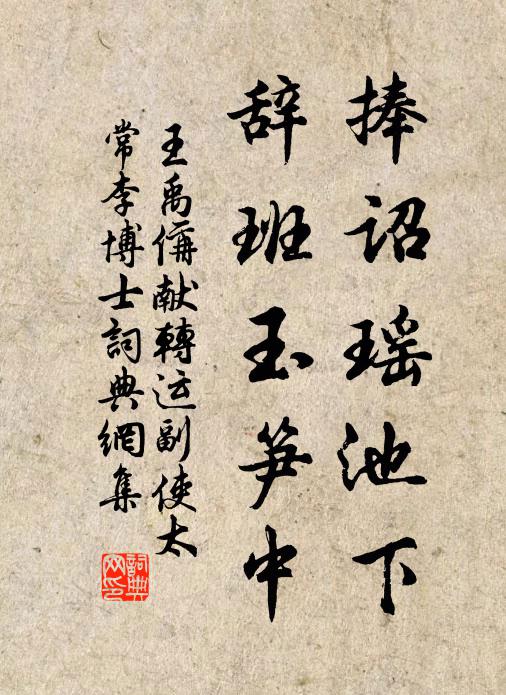 捧诏瑶池下
辞班玉笋中
王禹偁献轉运副使太
常李博士詞典網集
詞典
网印